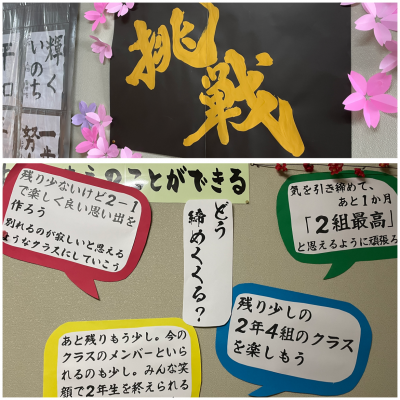 輝く
いのち
挑戦
のことができる
残り少ないけど2-1
で楽しく良い思い出を
作ろう
別れるのが寂しいと思える
ようなクラスにしていこう
どう
締めくくる？
気を引き締めて、
あと1か月
「2組最高」
と思えるように頑張ろ
あと残りもう少し。今の
クラスのメンバーといら
れるのも少し。みんな笑
顔で2年生を終えられる
残り少しの
2年4組のクラス
を楽しもう